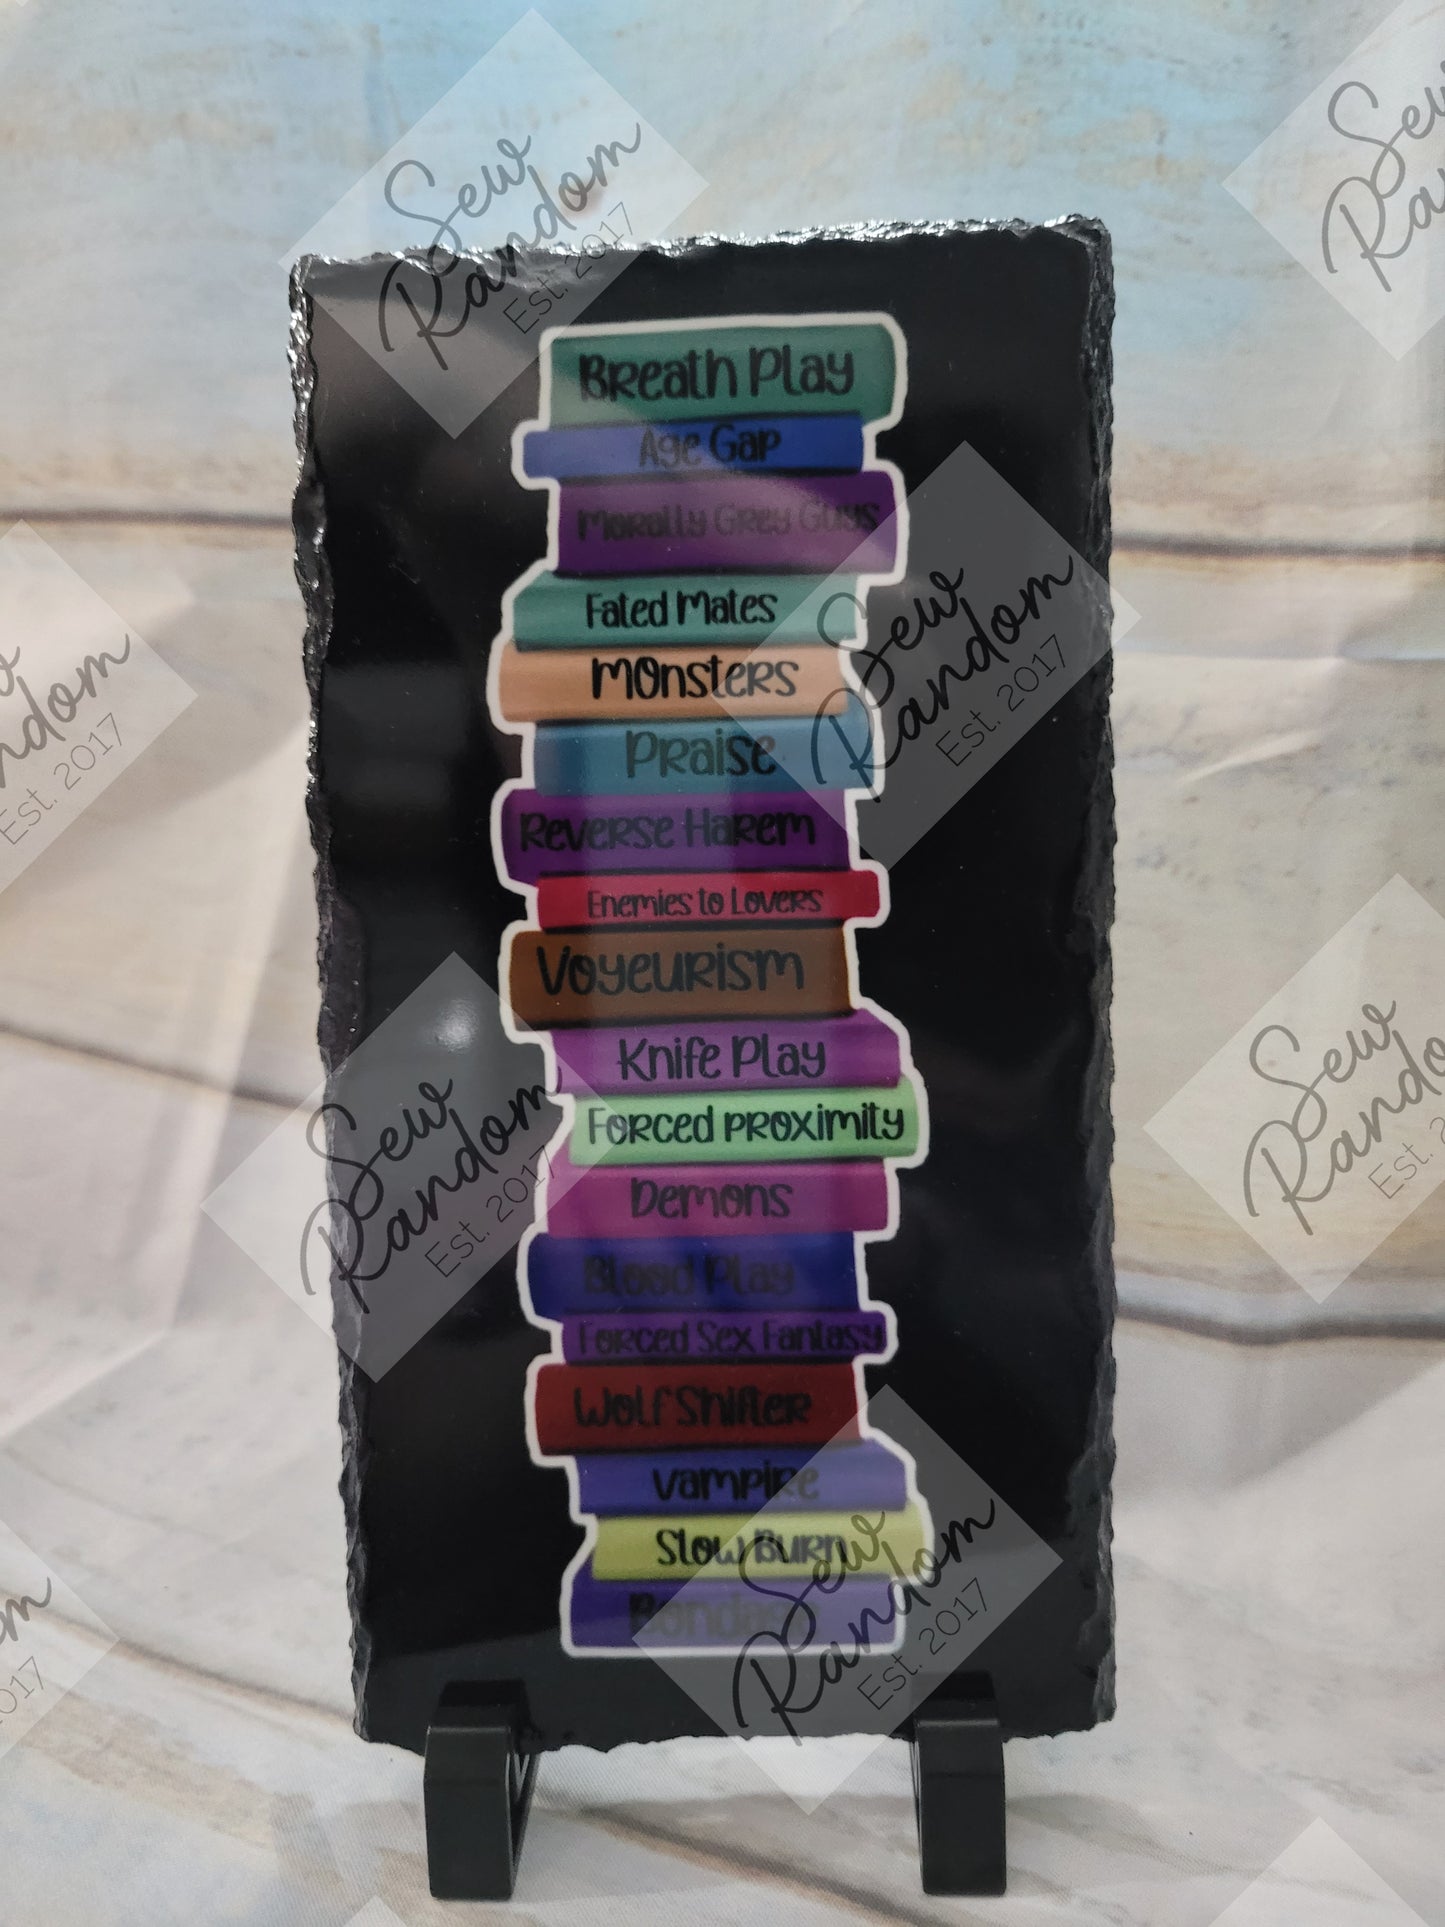 Sew
Random
Est. 2017
Breath Play
Age Gap
Morally Grey Guys
Fated Mates
Monsters
Praise
Reverse Harem
Enemies to Lovers
Voyeurism
Knife Play
Forced proximity
Demons
Blood Play
Forced Sex Fantasy
Wolf Shifter
Vampire
Slow Burn
Bondage
Sew
Random
Est. 2017
Sew
Random
Est. 2017
Sew
Random
Est. 2017
Random
Est.
Est. 2017
2017